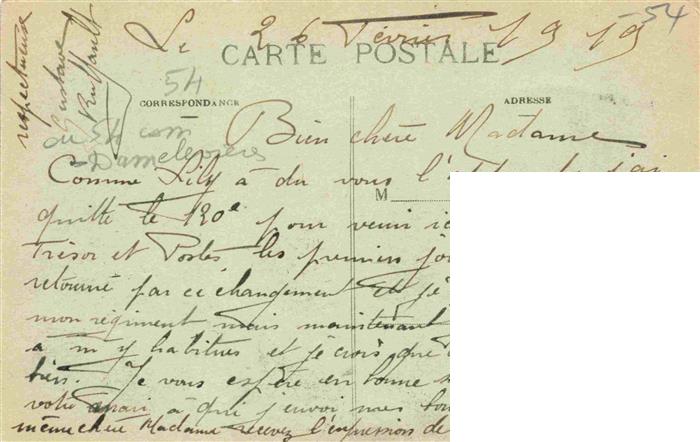 Le 26 Février 1919
54
CARTE POSTALE
54
CORRESPONDANCE
ADRESSE
respectueuse
Gustave
du 54 com
Damelevières
Bien chère Madame
Comme Lily a du vous l'
M
quitté le 120e pour venir
Trésor et Postes les premiers
retourné par ce changement et je
mon régiment mais maintenant
a m'y habituer et je crois que
bien. Je vous espère en bonne
votre à qui j'envoi mes
même chère Madame recevez l'expression de